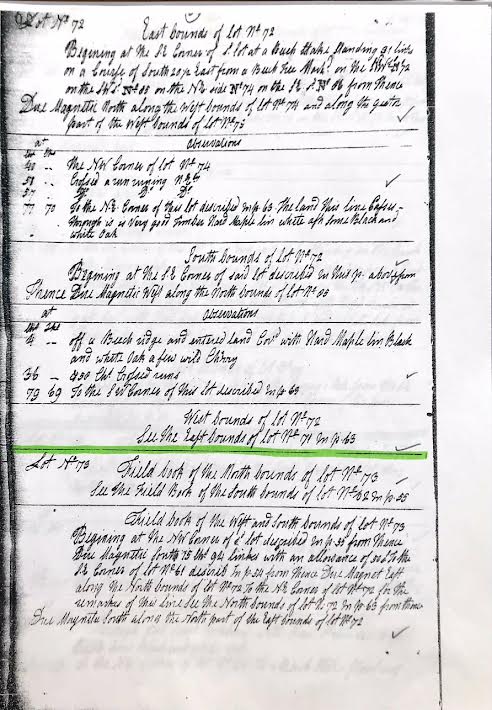 Lot No 72
East bounds of lot No 72
Begining at the SE Corner of S lot at a Beech Stake Standing 91 links
on a Course of South 20½ East from a Beech Tree Mark on the NW No 72
on the SW No 85 on the NE side No 74 on the SE No 86 from Thence
Due Magnetic North along the West bounds of lot No 74 and along the
part of the West bounds of lot No 75
Observations
at
40 -- The NW Corner of lot No 74
50 -- Crossed a run runing
57 Do Do
77 70 To the NE Corner of this lot described in p 63 The land this line Passes
Through is is very good Timber Hard Maple lin white ash some Black and
white Oak
South bounds of lot No 72
Begining at the SE Corner of said lot described in this p. above from
Thence Due Magnetic West along the North bounds of lot No 85
Observations
at
4 -- off a Beech ridge and entered land Cov'd with Hard Maple lin Black
and white Oak a few wild Cherry
36 -- Crossed runs
79 69 To the SW Corner of this lot described in p 63
West bounds of lot No 72
See the East bounds of lot No 71 in p 63
Lot No 73 Field book of the North bounds of lot No 73
See the Field Book of the South bounds of lot No 62 in p 55
Field book of the West and South bounds of lot No 73
Begining at the NW Corner of S lot described in p 55 from Thence
Due Magnetic South 75 Chs 94 links with an allowance of to the
SE Corner of lot No 61 described in p 54 from Thence Due Magnet East
along the North bounds of lot No 72 to the NE Corner of lot No 72 for the
remarkes of this line See the North bounds of lot No 72 in p 63 from thence
Due Magnetic South along the North part of the East bounds of lot No 72